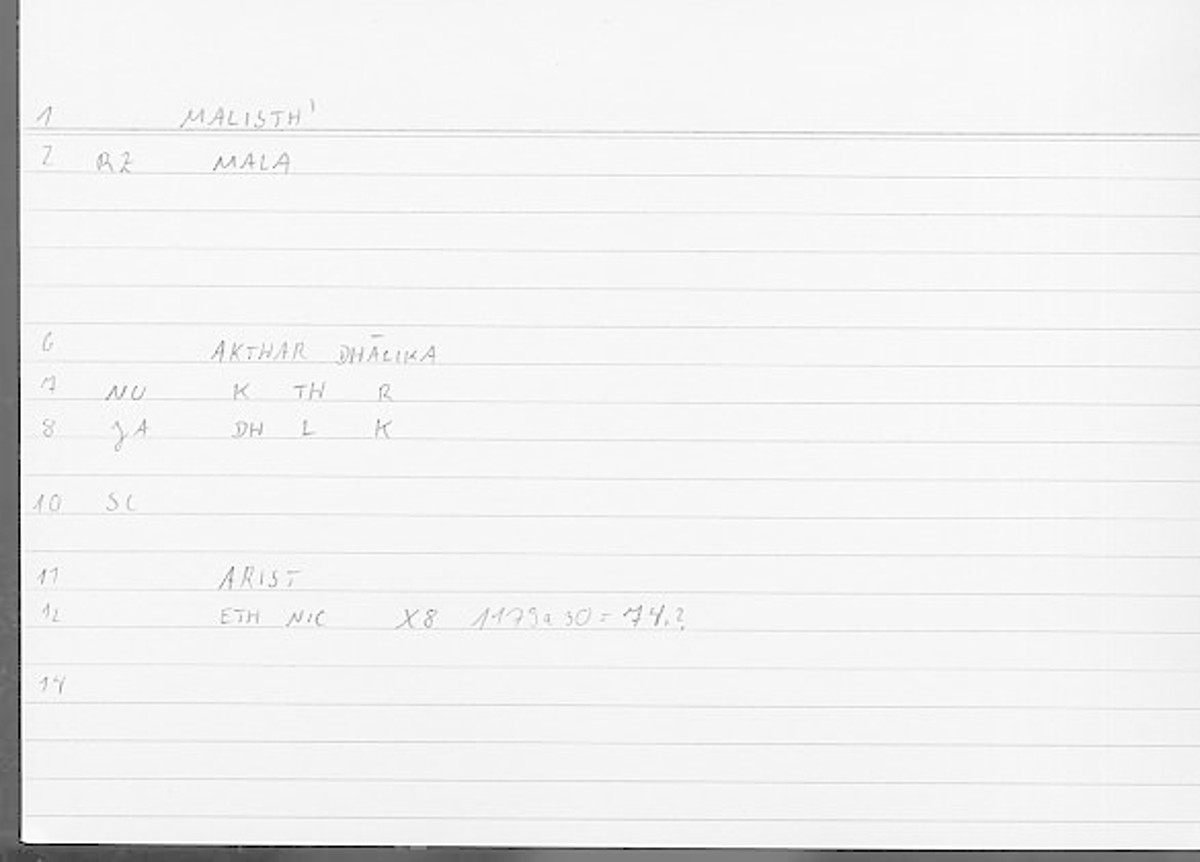 1 MALISTH'
2 RZ MALA
6 AKTHAR DHĀLIKA
7 NU K TH R
8 JA DH L K
10 SC
11 ARIST
12 ETH NIC X8 1179a30 = 74.2
14